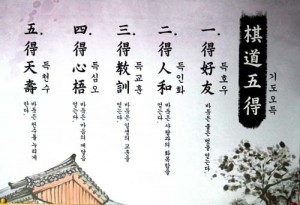 棋道五得
기도오득
一. 得好友
득호우
바둑은 좋은 벗을 얻는다.
二. 得人和
득인화
바둑은 사람과의 화목함을
얻는다.
三. 得敎訓
득교훈
바둑은 인생의 교훈을
얻는다.
四. 得心悟
득심오
바둑은 마음의 깨달음
얻는다.
五. 得天壽
득천수
바둑은 천수를 누리게
한다.